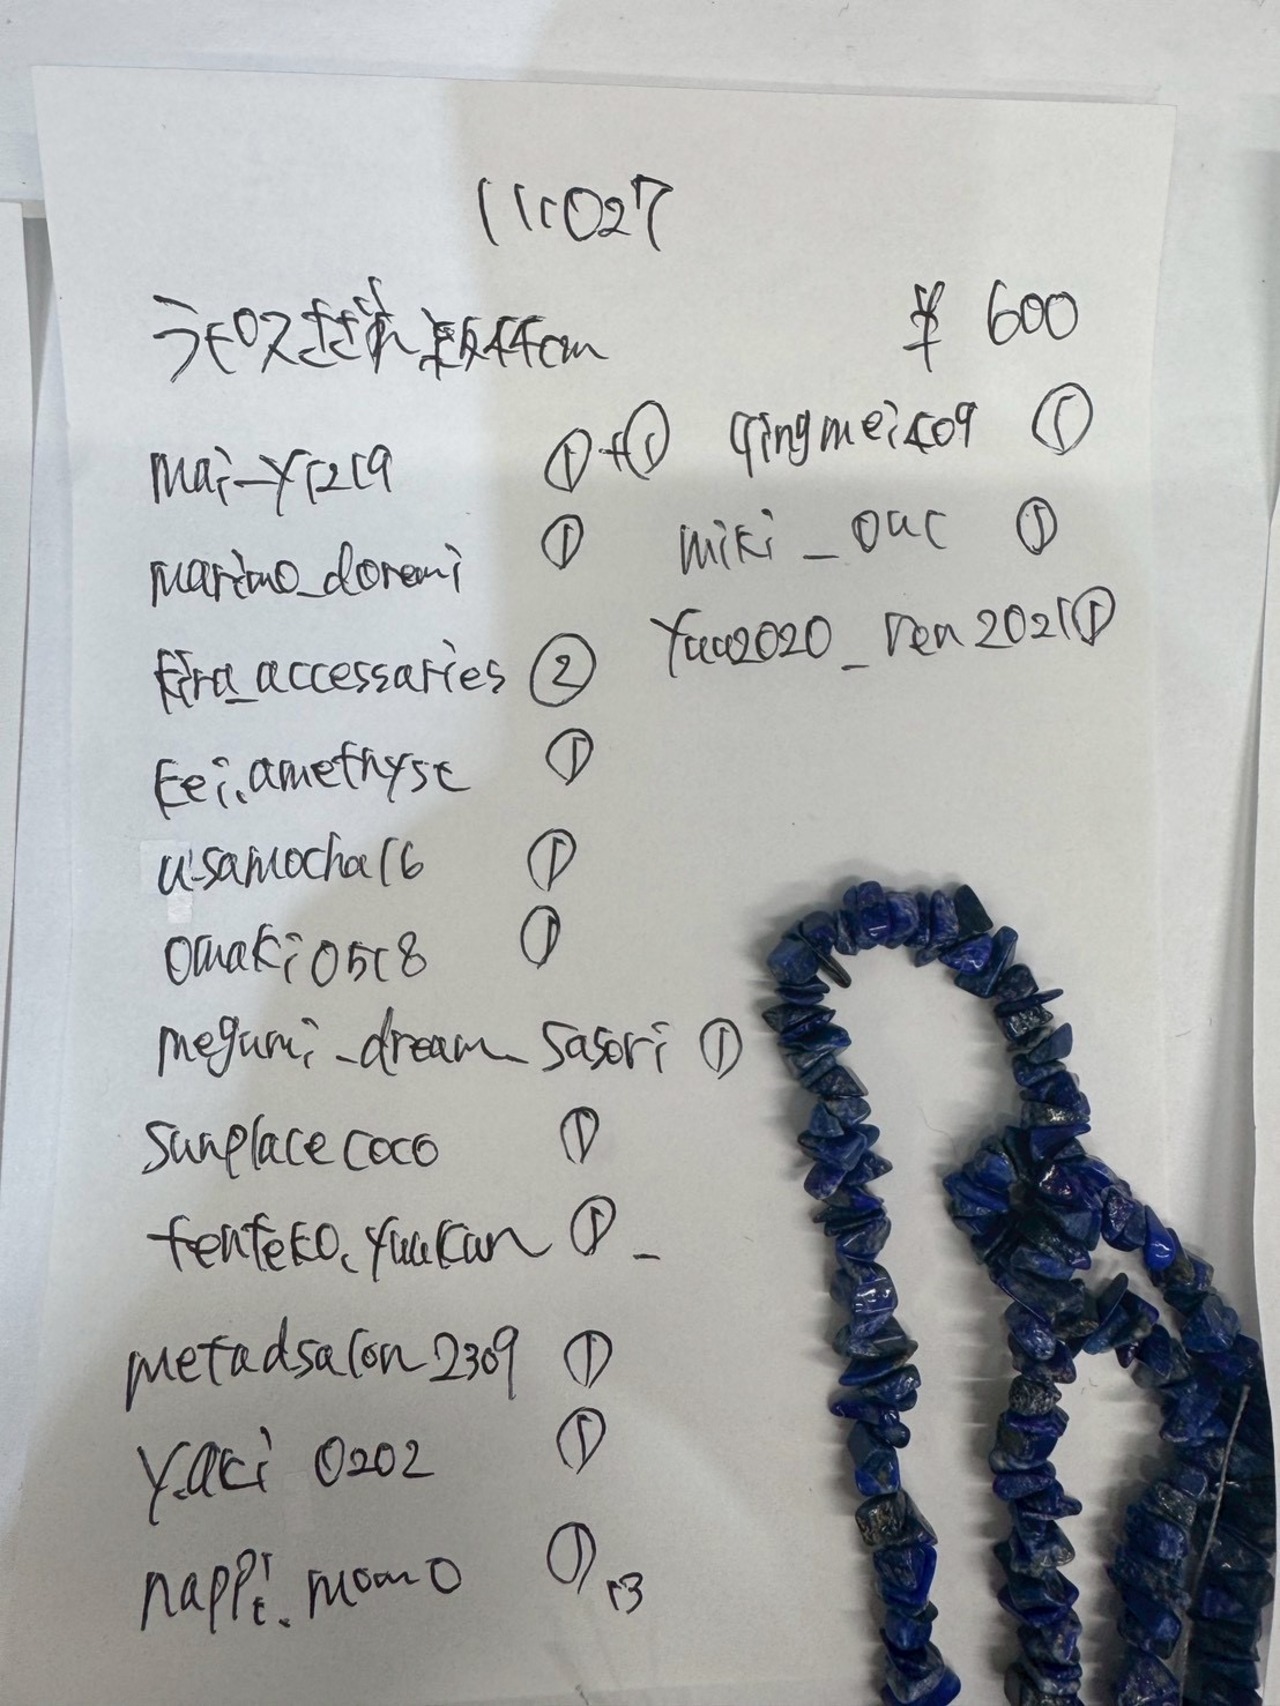 111027
ラピスさざれ 約44cm ¥ 600
mai-y1219 ①+①
marimo_doremi ①
kira_accessaries ②
kei.amethyst ①
u.samocha16 ①
omaki0518 ①
megumi_dream_sasori ①
sunplacecoco ①
tenteko.yuukun ① -
metadsalon2309 ①
y.aki 0202 ①
nappi.momo ① 13
qingmei409 ①
miki_ouc ①
yuu2020_ren2021 ①